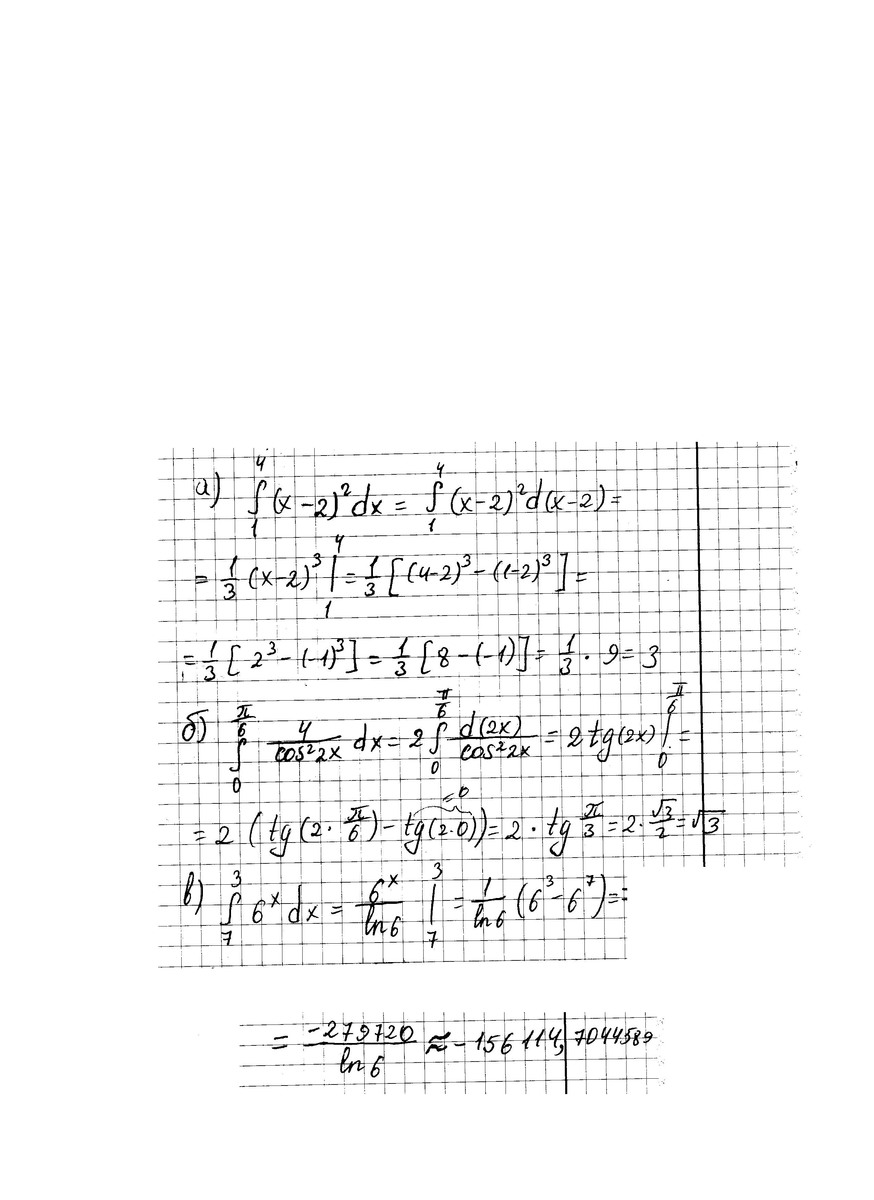 а) ∫₁⁴ (x-2)² dx = ∫₁⁴ (x-2)² d(x-2) =
= 1/3 (x-2)³ |₁⁴ = 1/3 [(4-2)³ - (1-2)³] =
= 1/3 [2³ - (-1)³] = 1/3 [8 - (-1)] = 1/3 · 9 = 3
б) ∫₀^(π/6) 4/(cos² 2x) dx = 2 ∫₀^(π/6) d(2x)/(cos² 2x) = 2 tg(2x) |₀^(π/6) =
= 2 (tg(2 · π/6) - tg(2·0)) = 2 · tg π/3 = 2 · √3/2 = √3
= 0
в) ∫₇³ 6ˣ dx = 6ˣ/ln 6 |₇³ = 1/ln 6 (6³ - 6⁷) =
= -279720/ln 6 ≈ -156 114, 7044589